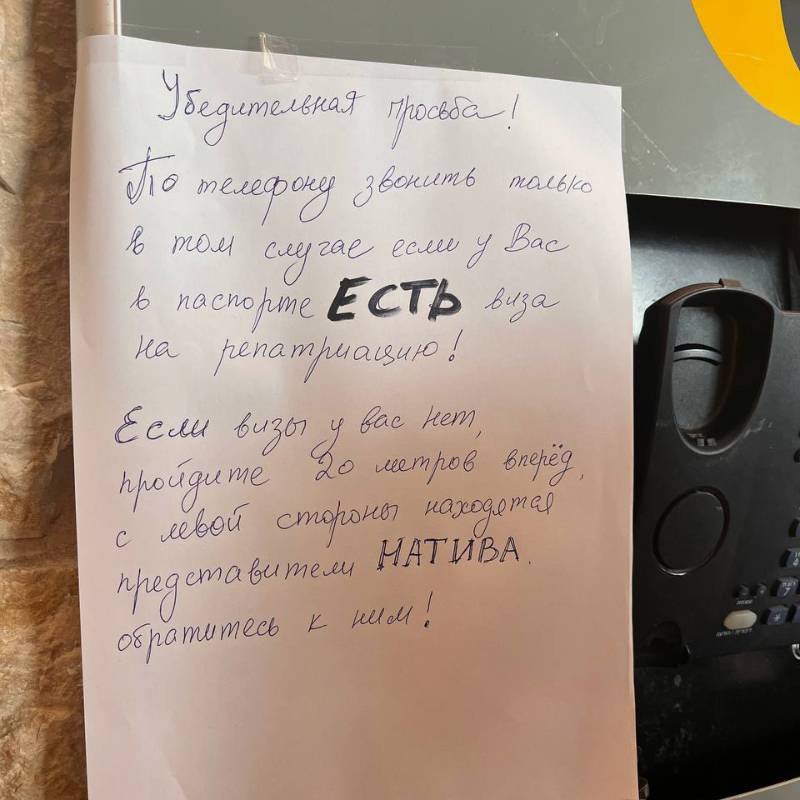 Убедительная просьба!
По телефону звонить только
в том случае если у Вас
в паспорте ЕСТЬ виза
на репатриацию!
Если визы у вас нет,
пройдите 20 метров вперёд,
с левой стороны находятся
представители НАТИВА.
обратитесь к ним!